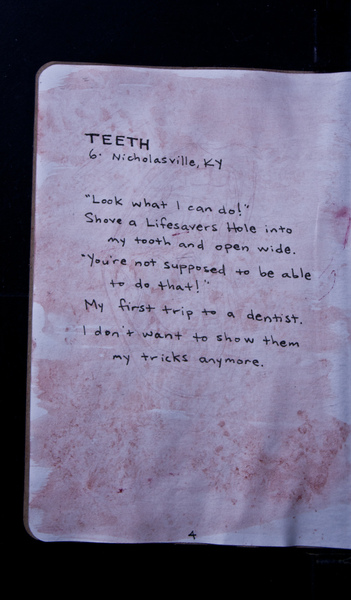 TEETH
6. Nicholasville, KY
"Look what I can do!"
Shove a Lifesavers Hole into
my tooth and open wide.
"You're not supposed to be able
to do that!"
My first trip to a dentist.
I don't want to show them
my tricks anymore.
4